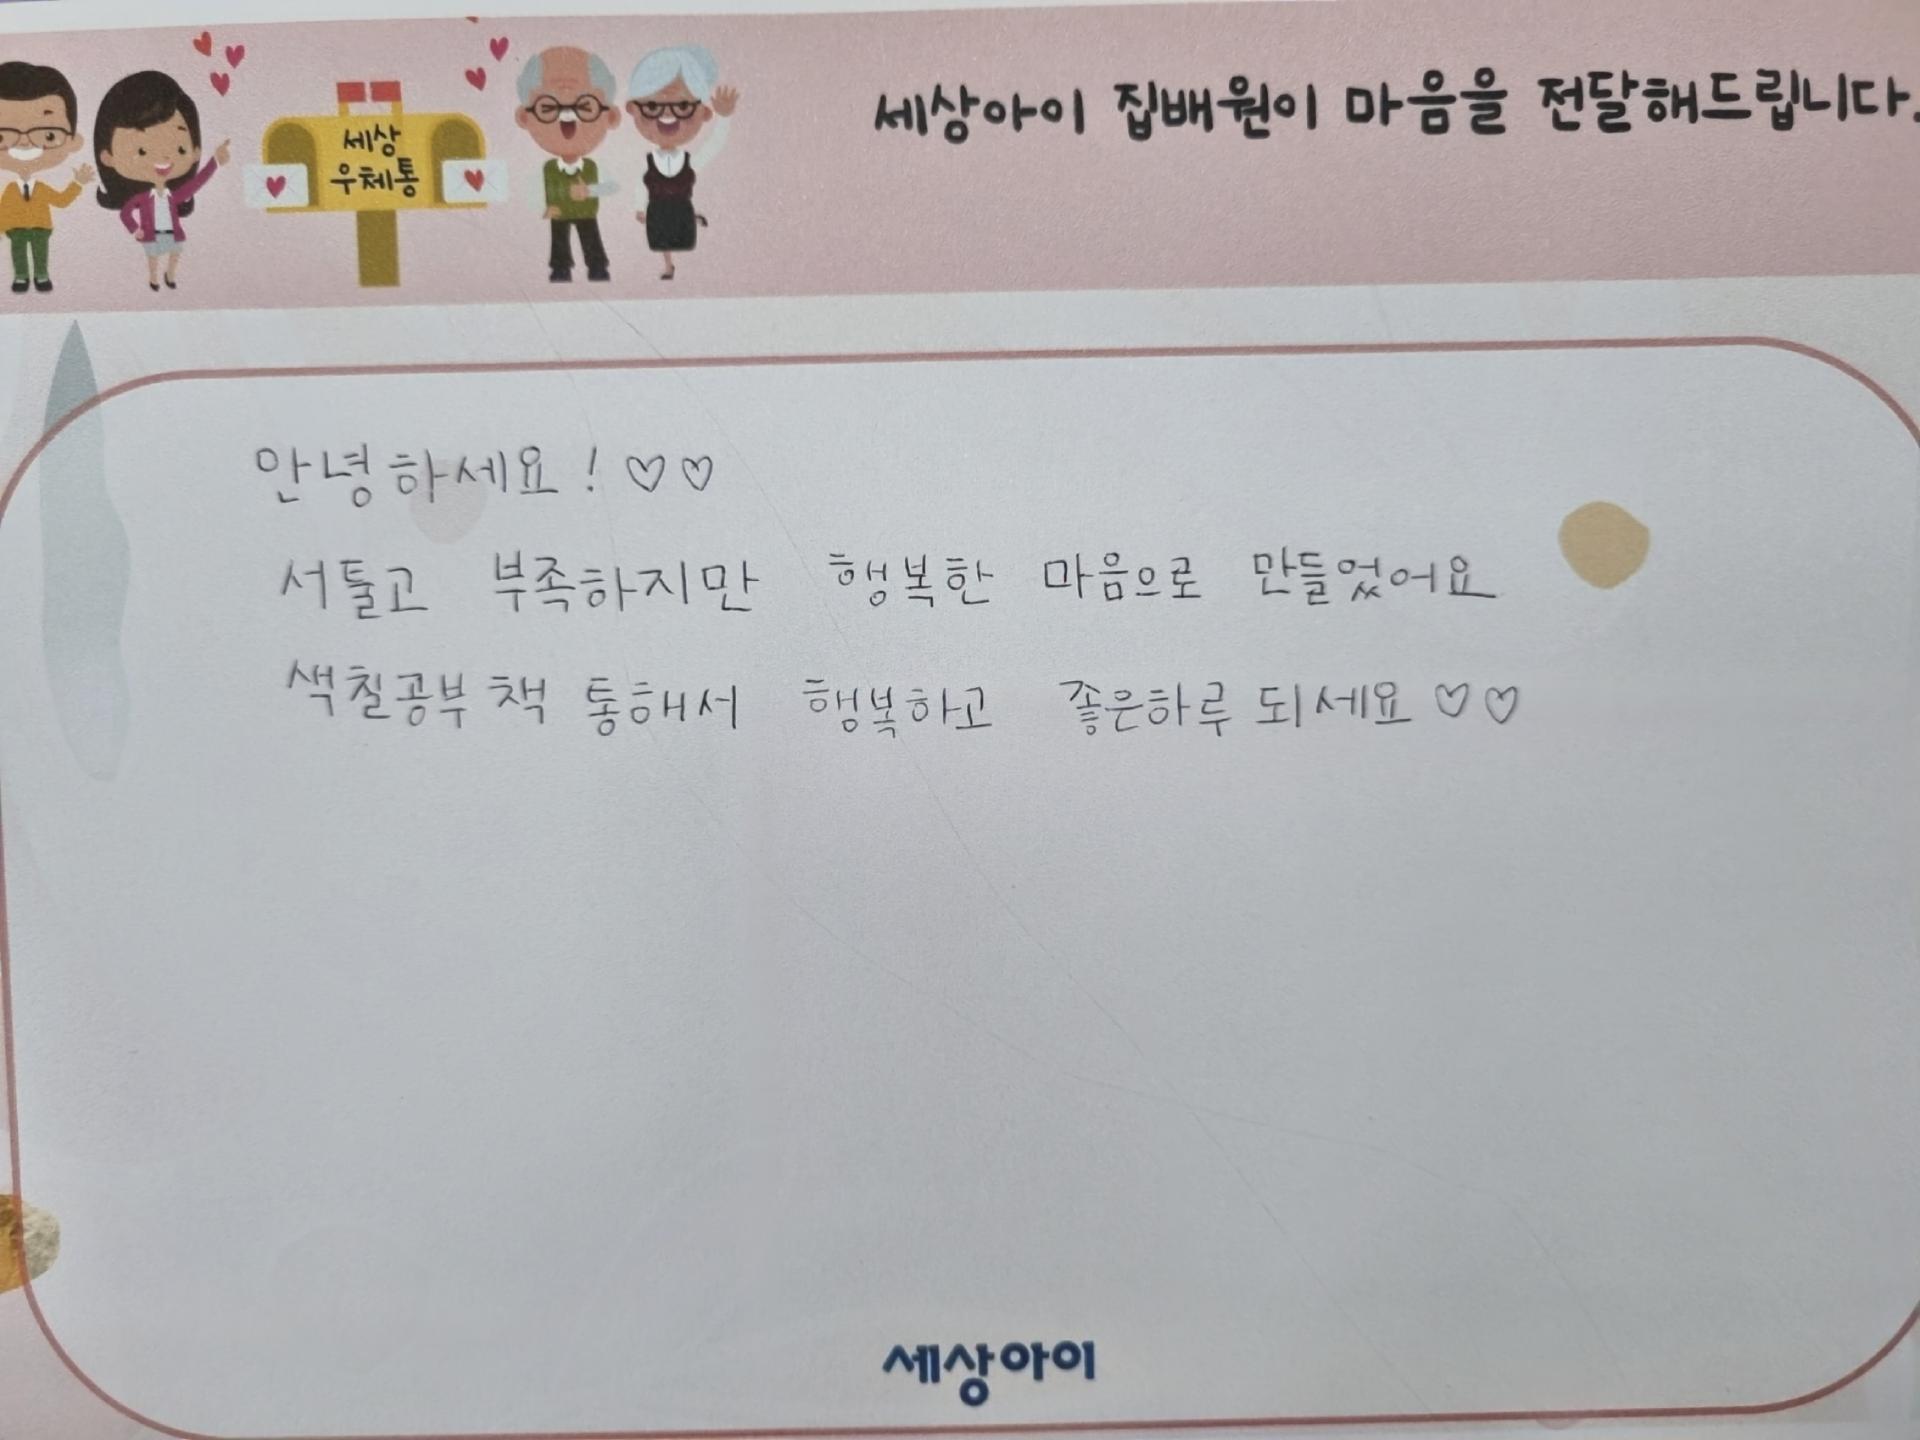 세상아이 집배원이 마음을 전달해드립니다.
세상
우체통
안녕하세요! ♡♡
서툴고 부족하지만 행복한 마음으로 만들었어요
색칠공부 책 통해서 행복하고 좋은하루 되세요 ♡♡
세상아이